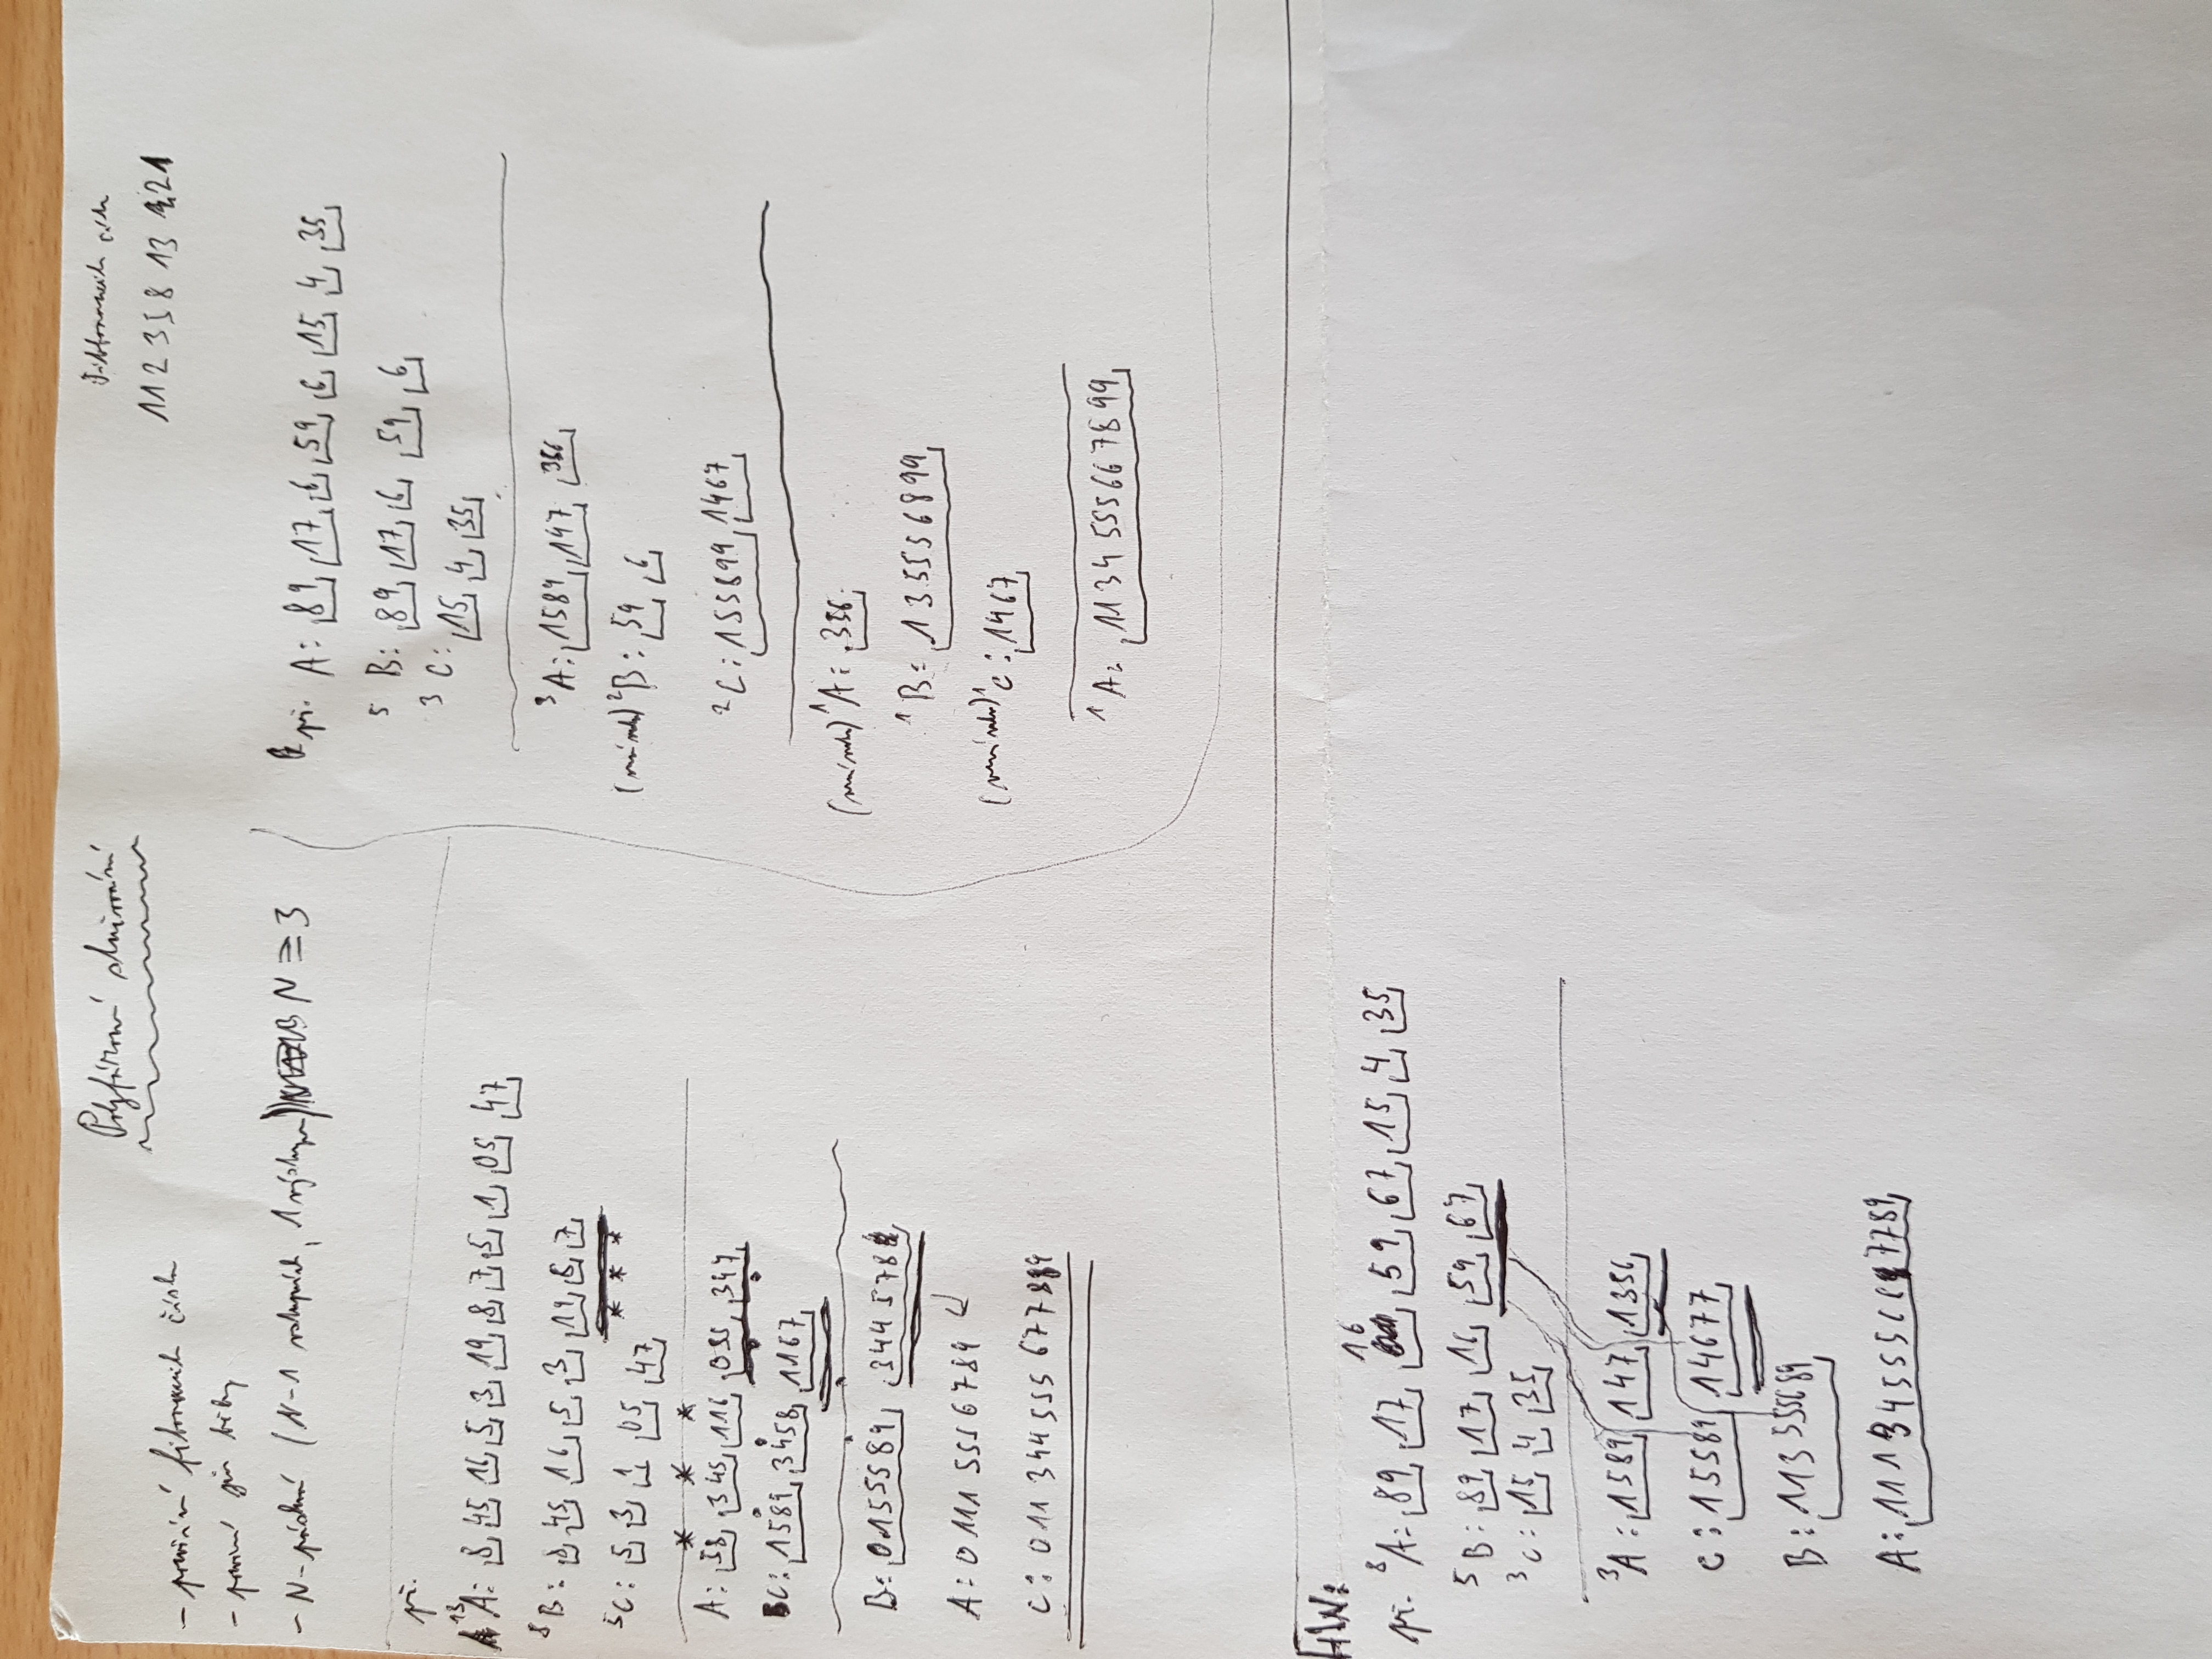 Polyfázové slučování
Fibbonaciho čísla
1 1 2 3 5 8 13 21
- použití fibonaciho čísla
- přirozené běhy
- N-páskové (N-1 vstupních, 1 výstupní) N ≥ 3
př.
13 A: 8 45 16 5 3 19 8 7 5 1 05 47
8 B: 8 45 16 5 3 19 8 7
* * *
5 C: 5 3 1 05 47
* * *
A: 58 345 116 035 347
C: 1589 3458 1167
B: 0155589 3445788
A: 01115556789
C: 011344555677889
př. A: 89 17 6 59 6 15 4 35
5 B: 89 17 6 59 6
3 C: 15 4 35
3 A: 1589 147 356
2 B: 59 6
2 C: 155899 1467
1 A: 356
1 B: 135556899
1 C: 1467
1 A: 1134555667899
HW:
16
př. 8 A: 89 17 59 67 15 4 35
5 B: 89 17 16 59 67
3 C: 15 4 35
3 A: 1589 147 1356
C: 15589 14677
B: 113555689
A: 11134555667789